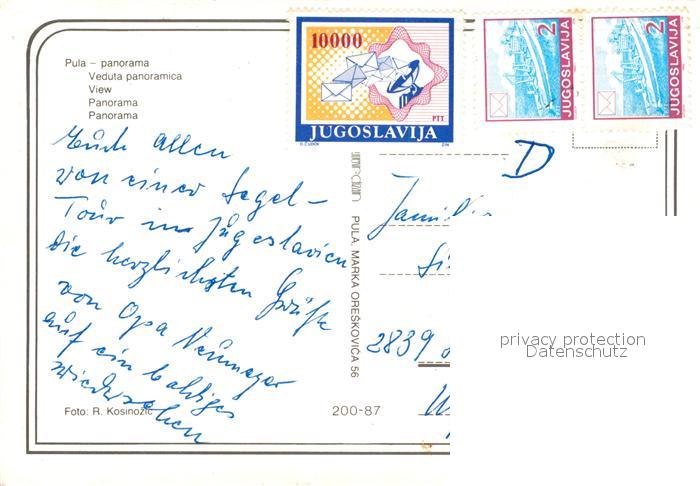 Pula – panorama
Veduta panoramica
View
Panorama
Panorama
10000
PTT
JUGOSLAVIJA
2
JUGOSLAVIJA
2
JUGOSLAVIJA
D
Euch Allen
von einer Segel-
Tour in Jugoslavien
die herzlichsten Grüße
von Opa
auf ein baldiges
wiedersehen
PULA, MARKA OREŠKOVIĆA 56
2839
privacy protection
Datenschutz
Foto: R. Kosinožić
200-87